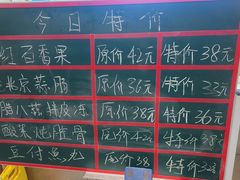 今日特价
红石香果 原价42元 特价38元
北京蒜肠 原价36元 特价33元
腊八蒜辣皮冻 原价38元 特价36元
酸菜炖脊骨 原价42元 特价38元
豆付鱼丸 原价38 特价